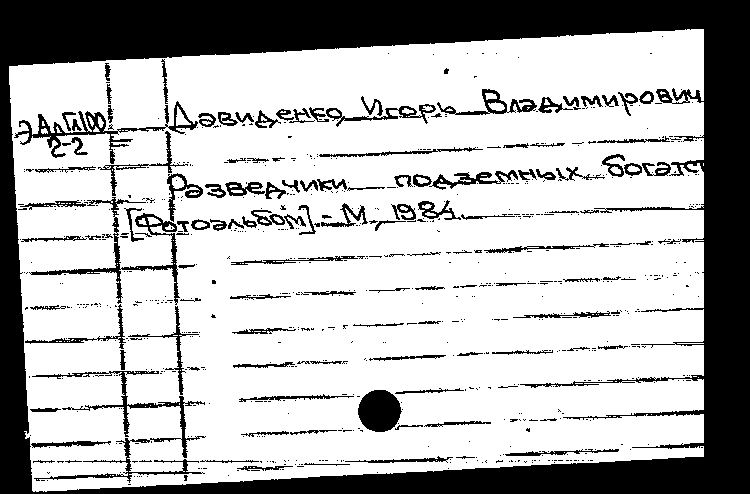 Э АлП100
2-2
Давиденко Игорь Владимирович
Разведчики подземных богатст
[Фотоальбом].- М, 1984.